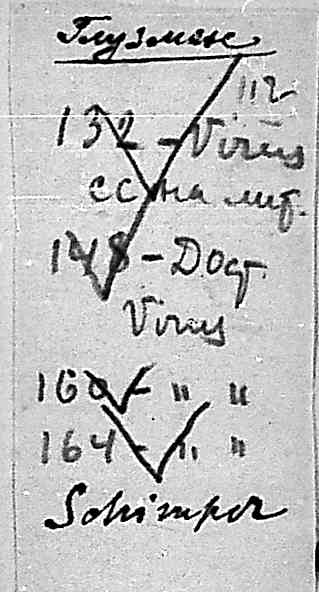 Глузман
112
132 - Virus
сс на лит.
148 - Dог.
Virus
160 - " "
164 - " "
Schimper